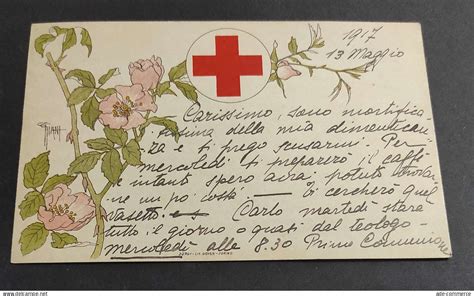 1917
13 Maggio
Carissimo, sono mortifica-
tissima della mia dimentican
za e ti prego scusarmi. Per
mercoledi ti preparerò il caffè
e intant spero avrai potuto trovar
ne un po' costà. — Ti cercherò quel
vasetto. — Carlo martedì starà
tutto il giorno o quasi dal teologo
mercoledì alle 8.30 Prima Comunione